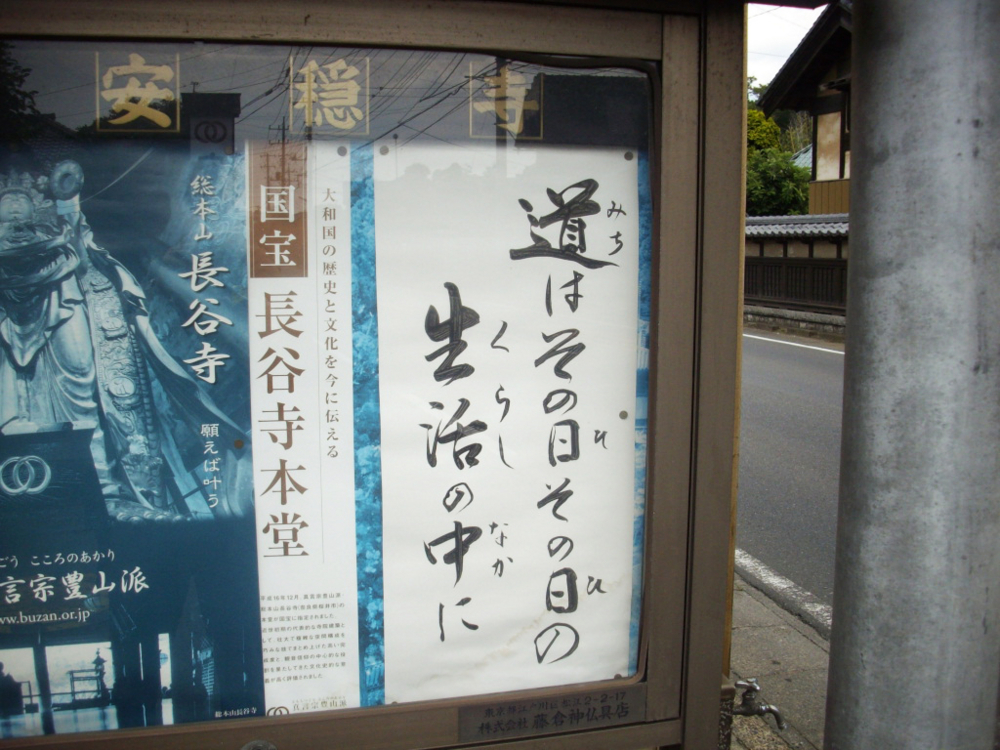 安穏寺
道はその日その日の
みち
ひ
生活の中に
くらし
なか
大和国の歴史と文化を今に伝える
国宝 長谷寺本堂
総本山 長谷寺
願えば叶う
こころのあかり
言宗豊山派
ww.buzan.or.jp
総本山長谷寺
真言宗豊山派
株式会社 藤倉神仏具店